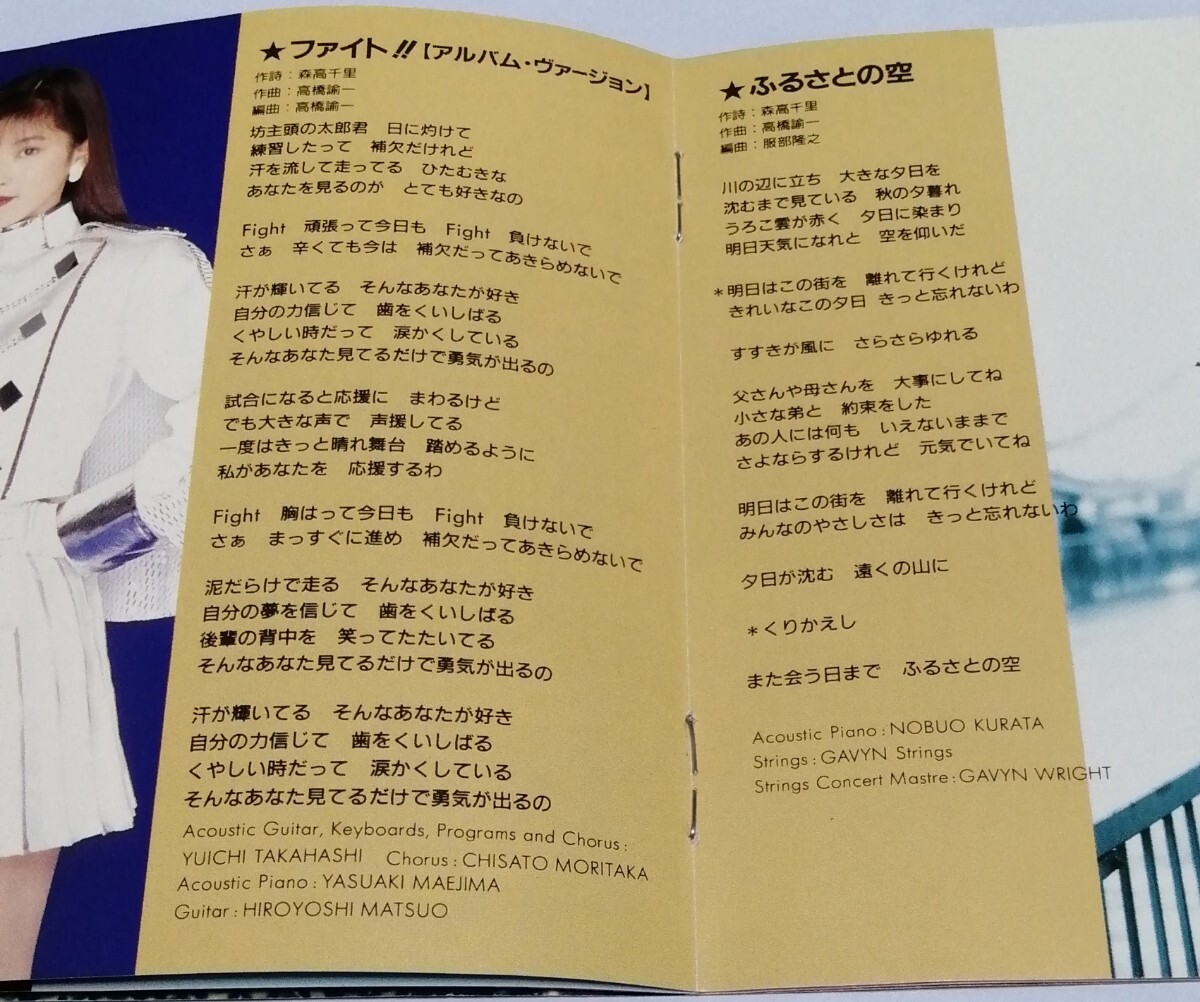 ★ファイト!!【アルバム・ヴァージョン】
作詩：森高千里
作曲：高橋諭一
編曲：高橋諭一
坊主頭の太郎君　日に灼けて
練習したって　補欠だけれど
汗を流して走ってる　ひたむきな
あなたを見るのが　とても好きなの
Fight　頑張って今日も　Fight　負けないで
さぁ　辛くても今は　補欠だってあきらめないで
汗が輝いてる　そんなあなたが好き
自分の力信じて　歯をくいしばる
くやしい時だって　涙かくしている
そんなあなた見てるだけで勇気が出るの
試合になると応援に　まわるけど
でも大きな声で　声援してる
一度はきっと晴れ舞台　踏めるように
私があなたを　応援するわ
Fight　胸はって今日も　Fight　負けないで
さぁ　まっすぐに進め　補欠だってあきらめないで
泥だらけで走る　そんなあなたが好き
自分の夢を信じて　歯をくいしばる
後輩の背中を　笑ってたたいてる
そんなあなた見てるだけで勇気が出るの
汗が輝いてる　そんなあなたが好き
自分の力信じて　歯をくいしばる
くやしい時だって　涙かくしている
そんなあなた見てるだけで勇気が出るの
Acoustic Guitar, Keyboards, Programs and Chorus :
YUICHI TAKAHASHI　Chorus : CHISATO MORITAKA
Acoustic Piano : YASUAKI MAEJIMA
Guitar : HIROYOSHI MATSUO
★ふるさとの空
作詩：森高千里
作曲：高橋諭一
編曲：服部隆之
川の辺に立ち　大きな夕日を
沈むまで見ている　秋の夕暮れ
うろこ雲が赤く　夕日に染まり
明日天気になれと　空を仰いだ
＊明日はこの街を　離れて行くけれど
きれいなこの夕日　きっと忘れないわ
すすきが風に　さらさらゆれる
父さんや母さんを　大事にしてね
小さな弟と　約束をした
あの人には何も　いえないままで
さよならするけれど　元気でいてね
明日はこの街を　離れて行くけれど
みんなのやさしさは　きっと忘れないわ
夕日が沈む　遠くの山に
＊くりかえし
また会う日まで　ふるさとの空
Acoustic Piano : NOBUO KURATA
Strings : GAVYN Strings
Strings Concert Mastre : GAVYN WRIGHT